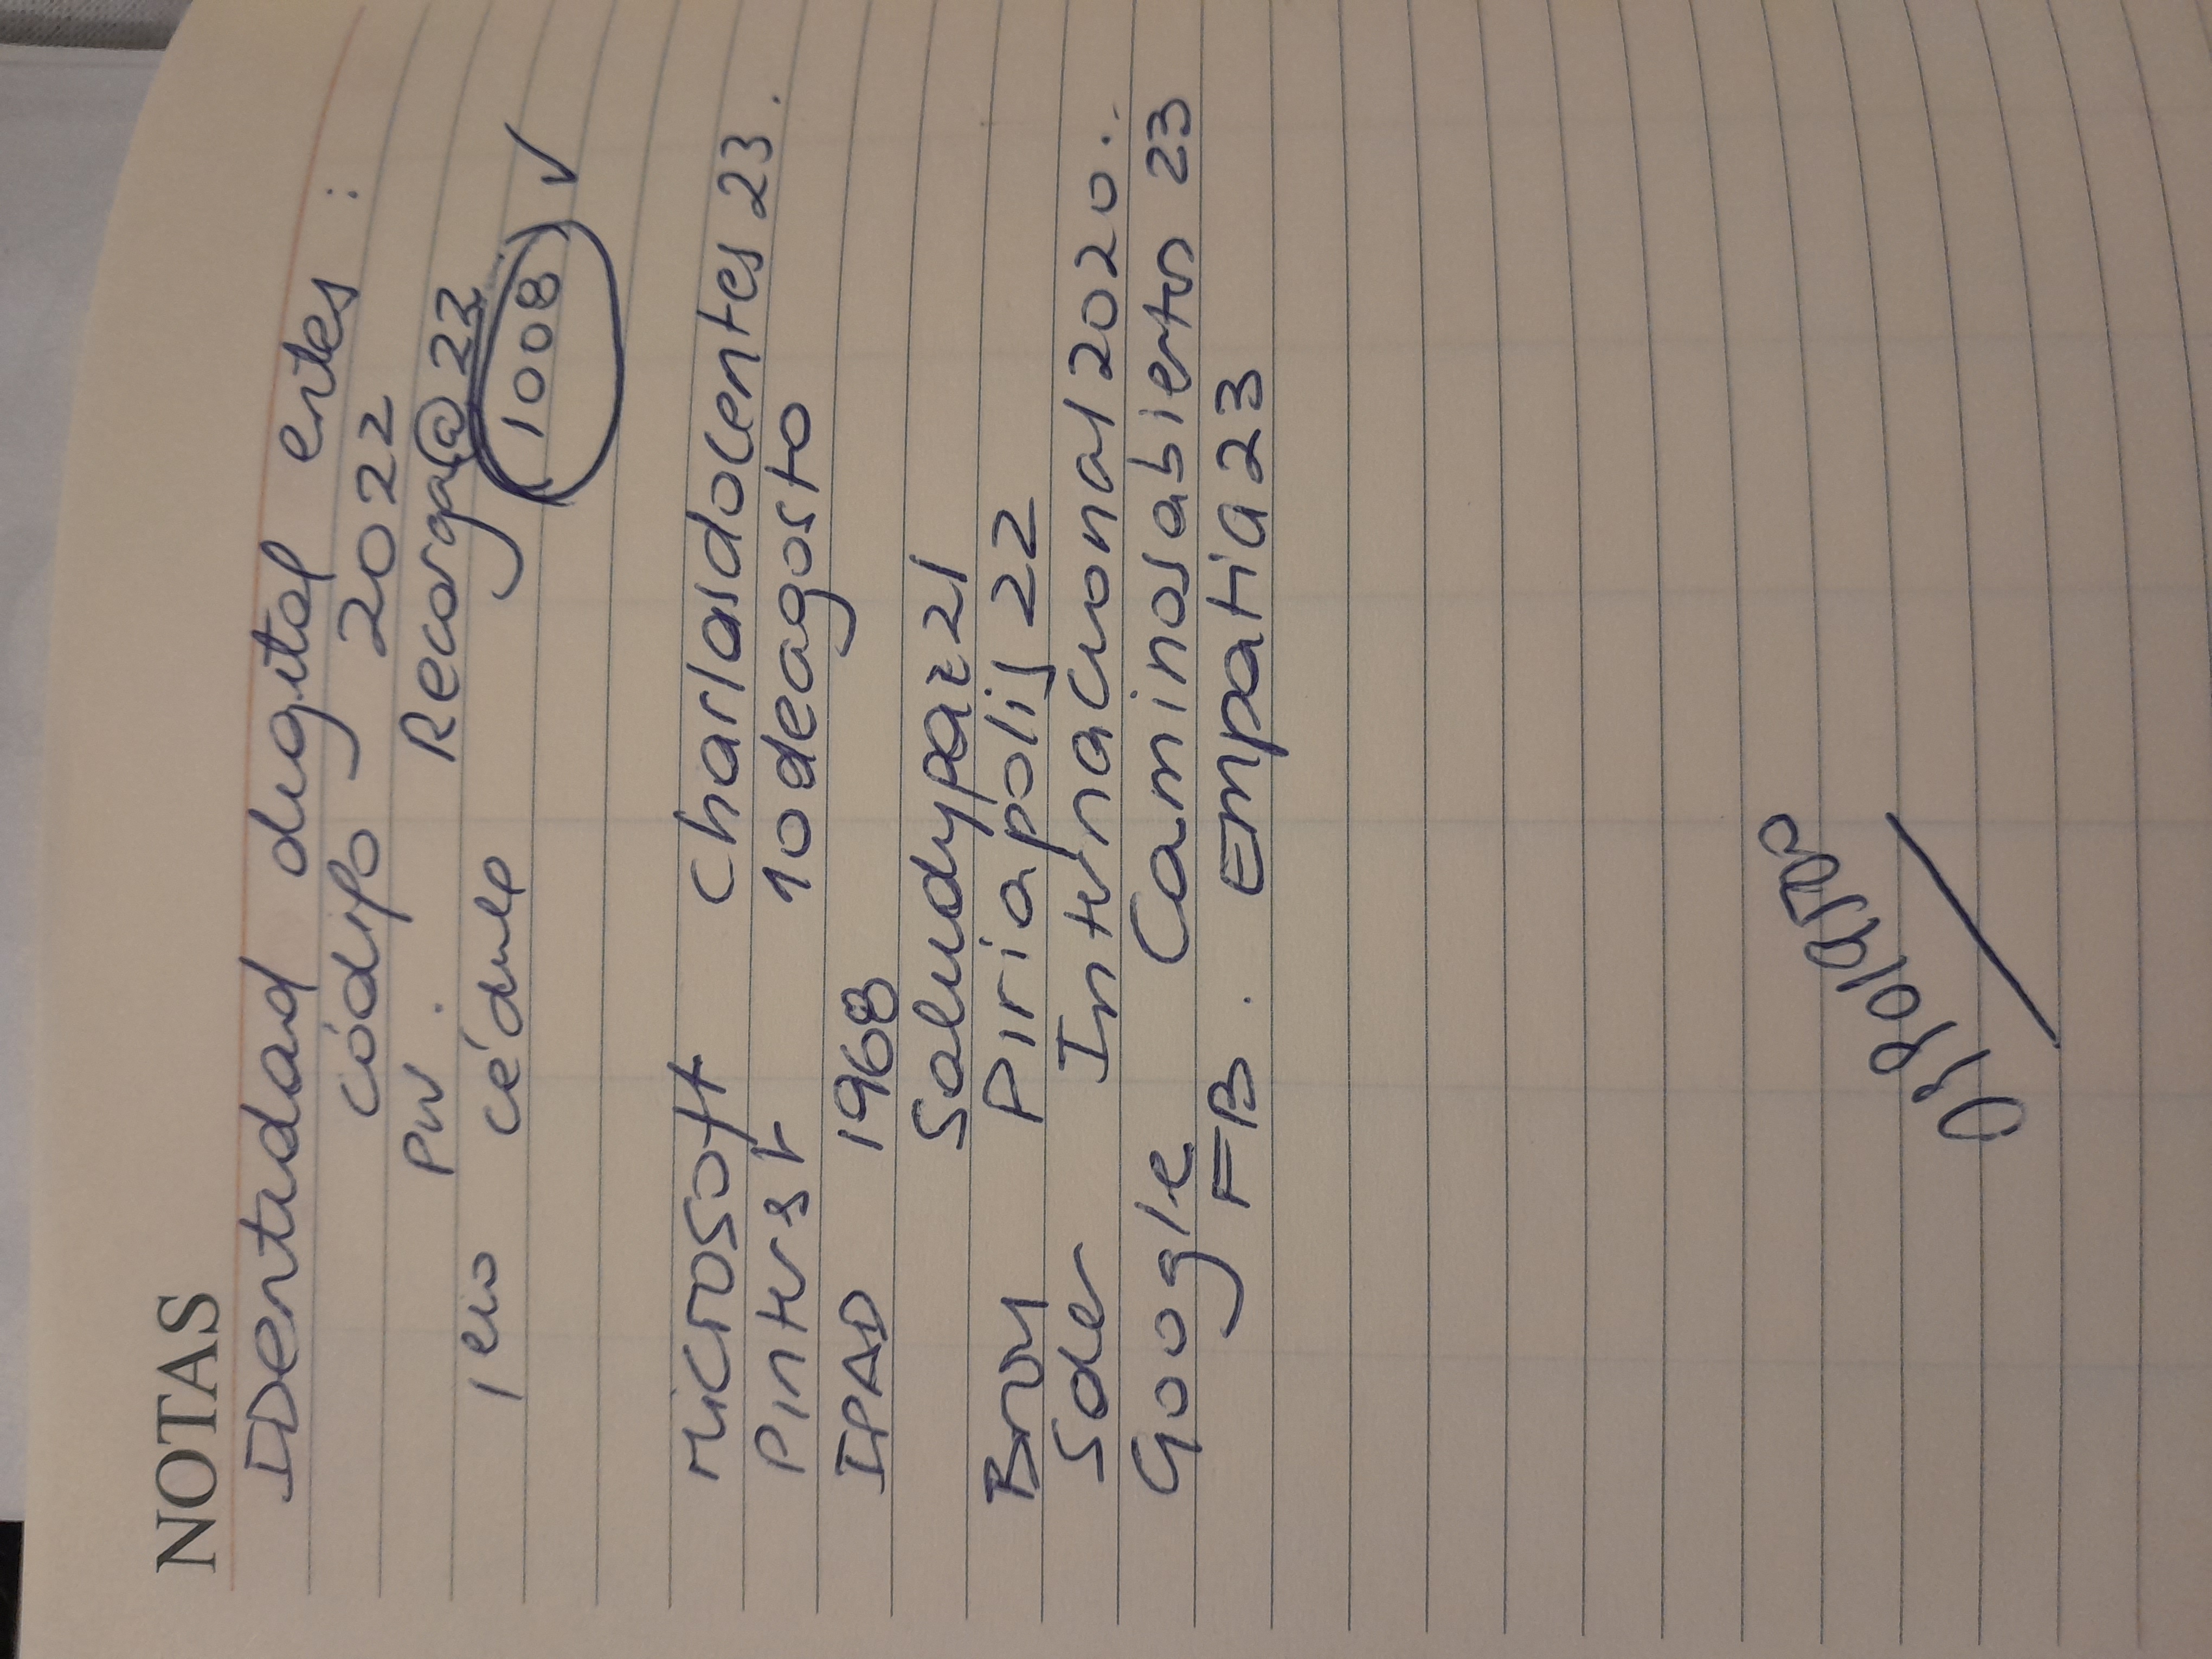 NOTAS
IDentidad digital entes :
código 2022
PW. Recarga@22
1eio cédula 1008 ✓
Microsoft Charlasdocentes 23.
Pinterest 10deagosto
IPAD 1968
Saludypaz21
BROU Piriapolis 22
Soder Internacional2020..
Google Caminosabierto 23
FB. Empatia 23